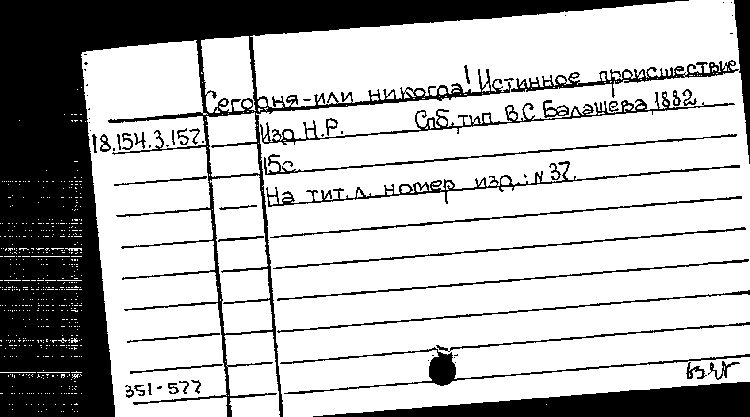 Сегодня-или никогда! Истинное происшествие
18.154.3.157. Изд. Н.Р. Спб, тип. В.С Балашева, 1882.
15с.
На тит. л. номер изд.: N 37.
351-577